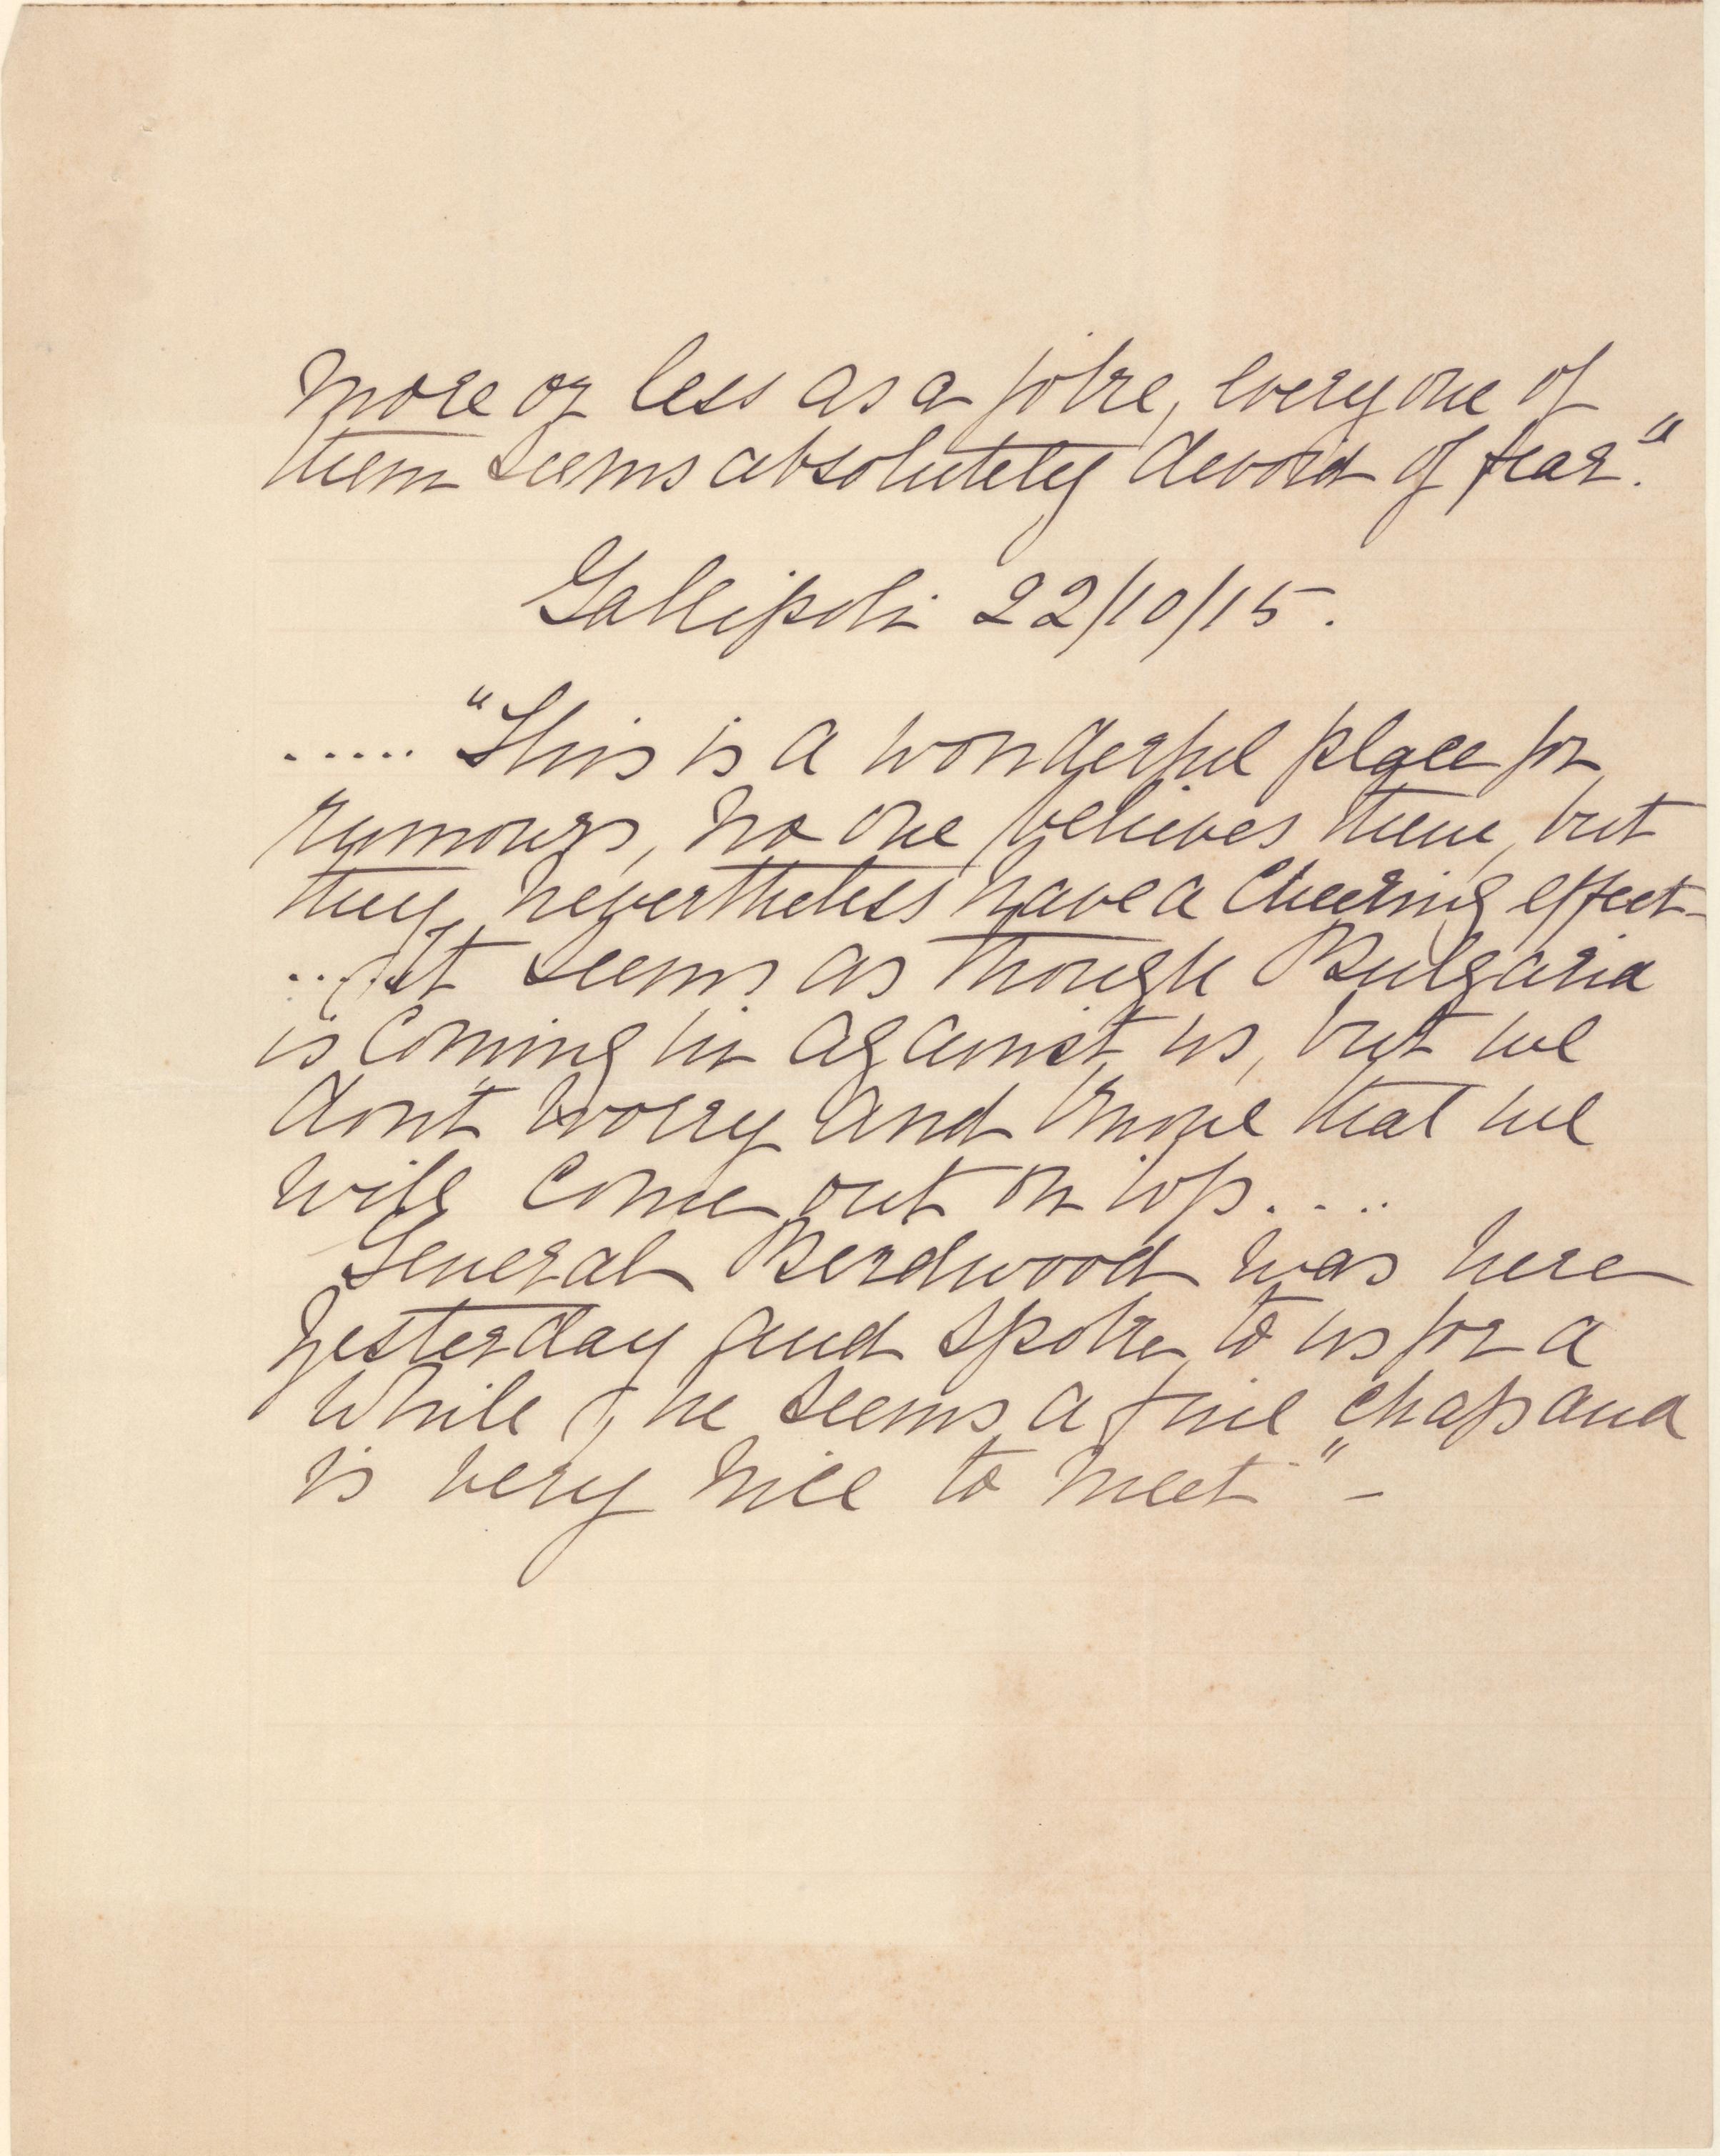 more or less as a joke, every one of
them seems absolutely devoid of fear."
Gallipoli 22/10/15.
..... "This is a wonderful place for
rumours, no one believes them, but
they nevertheless have a cheering effect
... It seems as though Bulgaria
is coming in against us, but we
don't worry and know that we
will come out on top....
General Berdwood was here
yesterday and spoke to us for a
while & he seems a fine chap and
is very nice to meet" -